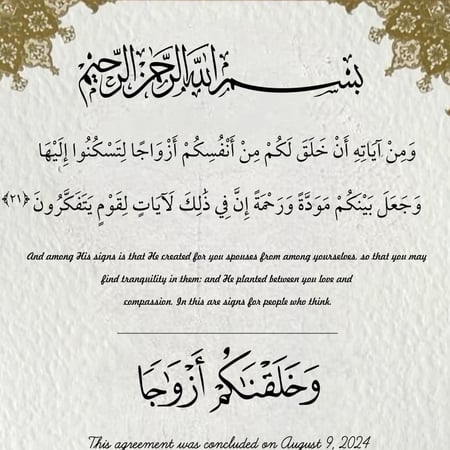 بسم الله الرحمن الرحيم
وَمِنْ آيَاتِهِ أَنْ خَلَقَ لَكُمْ مِنْ أَنْفُسِكُمْ أَزْوَاجًا لِتَسْكُنُوا إِلَيْهَا
وَجَعَلَ بَيْنَكُمْ مَوَدَّةً وَرَحْمَةً إِنَّ فِي ذَٰلِكَ لَآيَاتٍ لِقَوْمٍ يَتَفَكَّرُونَ ﴿٢١﴾
And among His signs is that He created for you spouses from among yourselves, so that you may
find tranquility in them; and He planted between you love and
compassion. In this are signs for people who think.
وَخَلَقْنَاكُمْ أَزْوَاجًا
This agreement was concluded on August 9, 2024